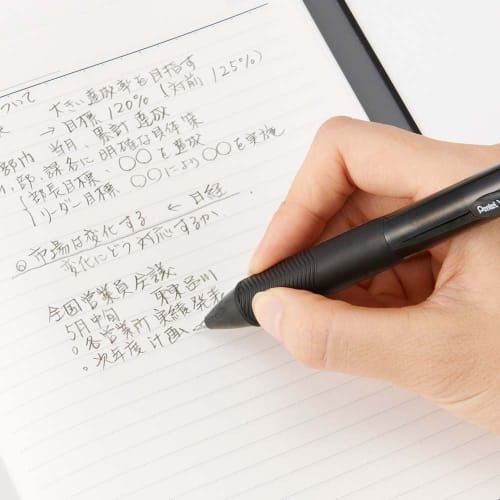 ついて
大きい直取率を目指す
→ 目標 120% (対前 125%)
部内 当月、累計 直取
部、課各に 明確な具体策
部長目標、○○を直取
リーダー目標 ○○により○○を実施
◎ 市場は変化する ← 日経
変化にどう対応するか
全国営業員会議
5月中旬 東品川
○各営業所 実績発表
○次年度 計画
Pentel